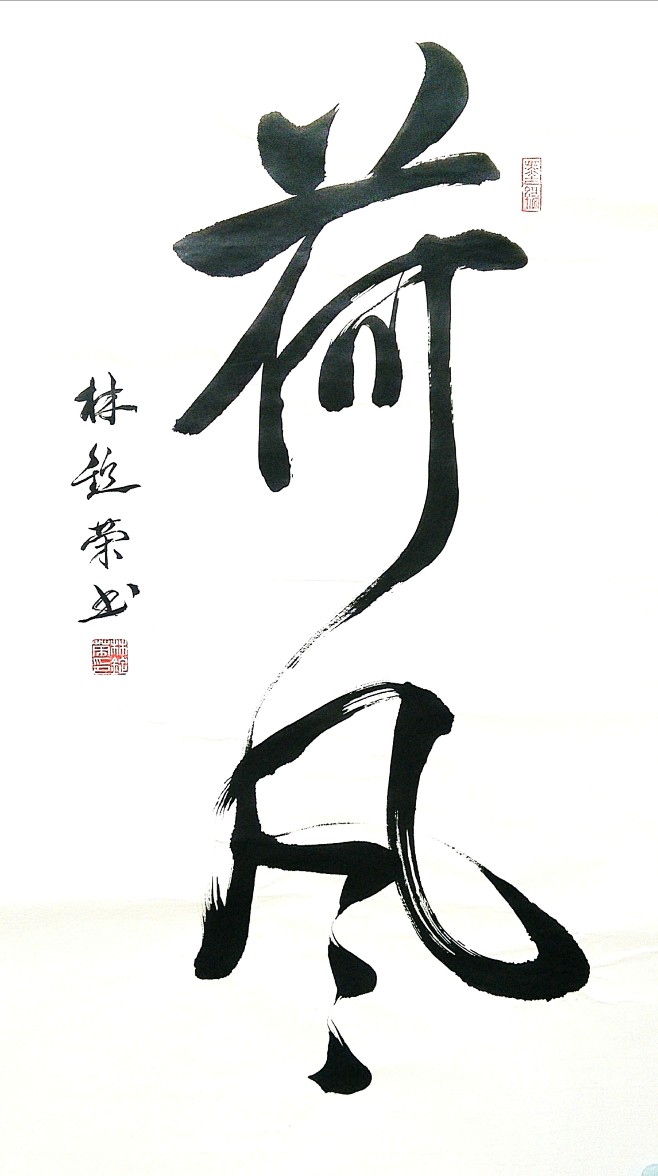 荷风
林
荣书